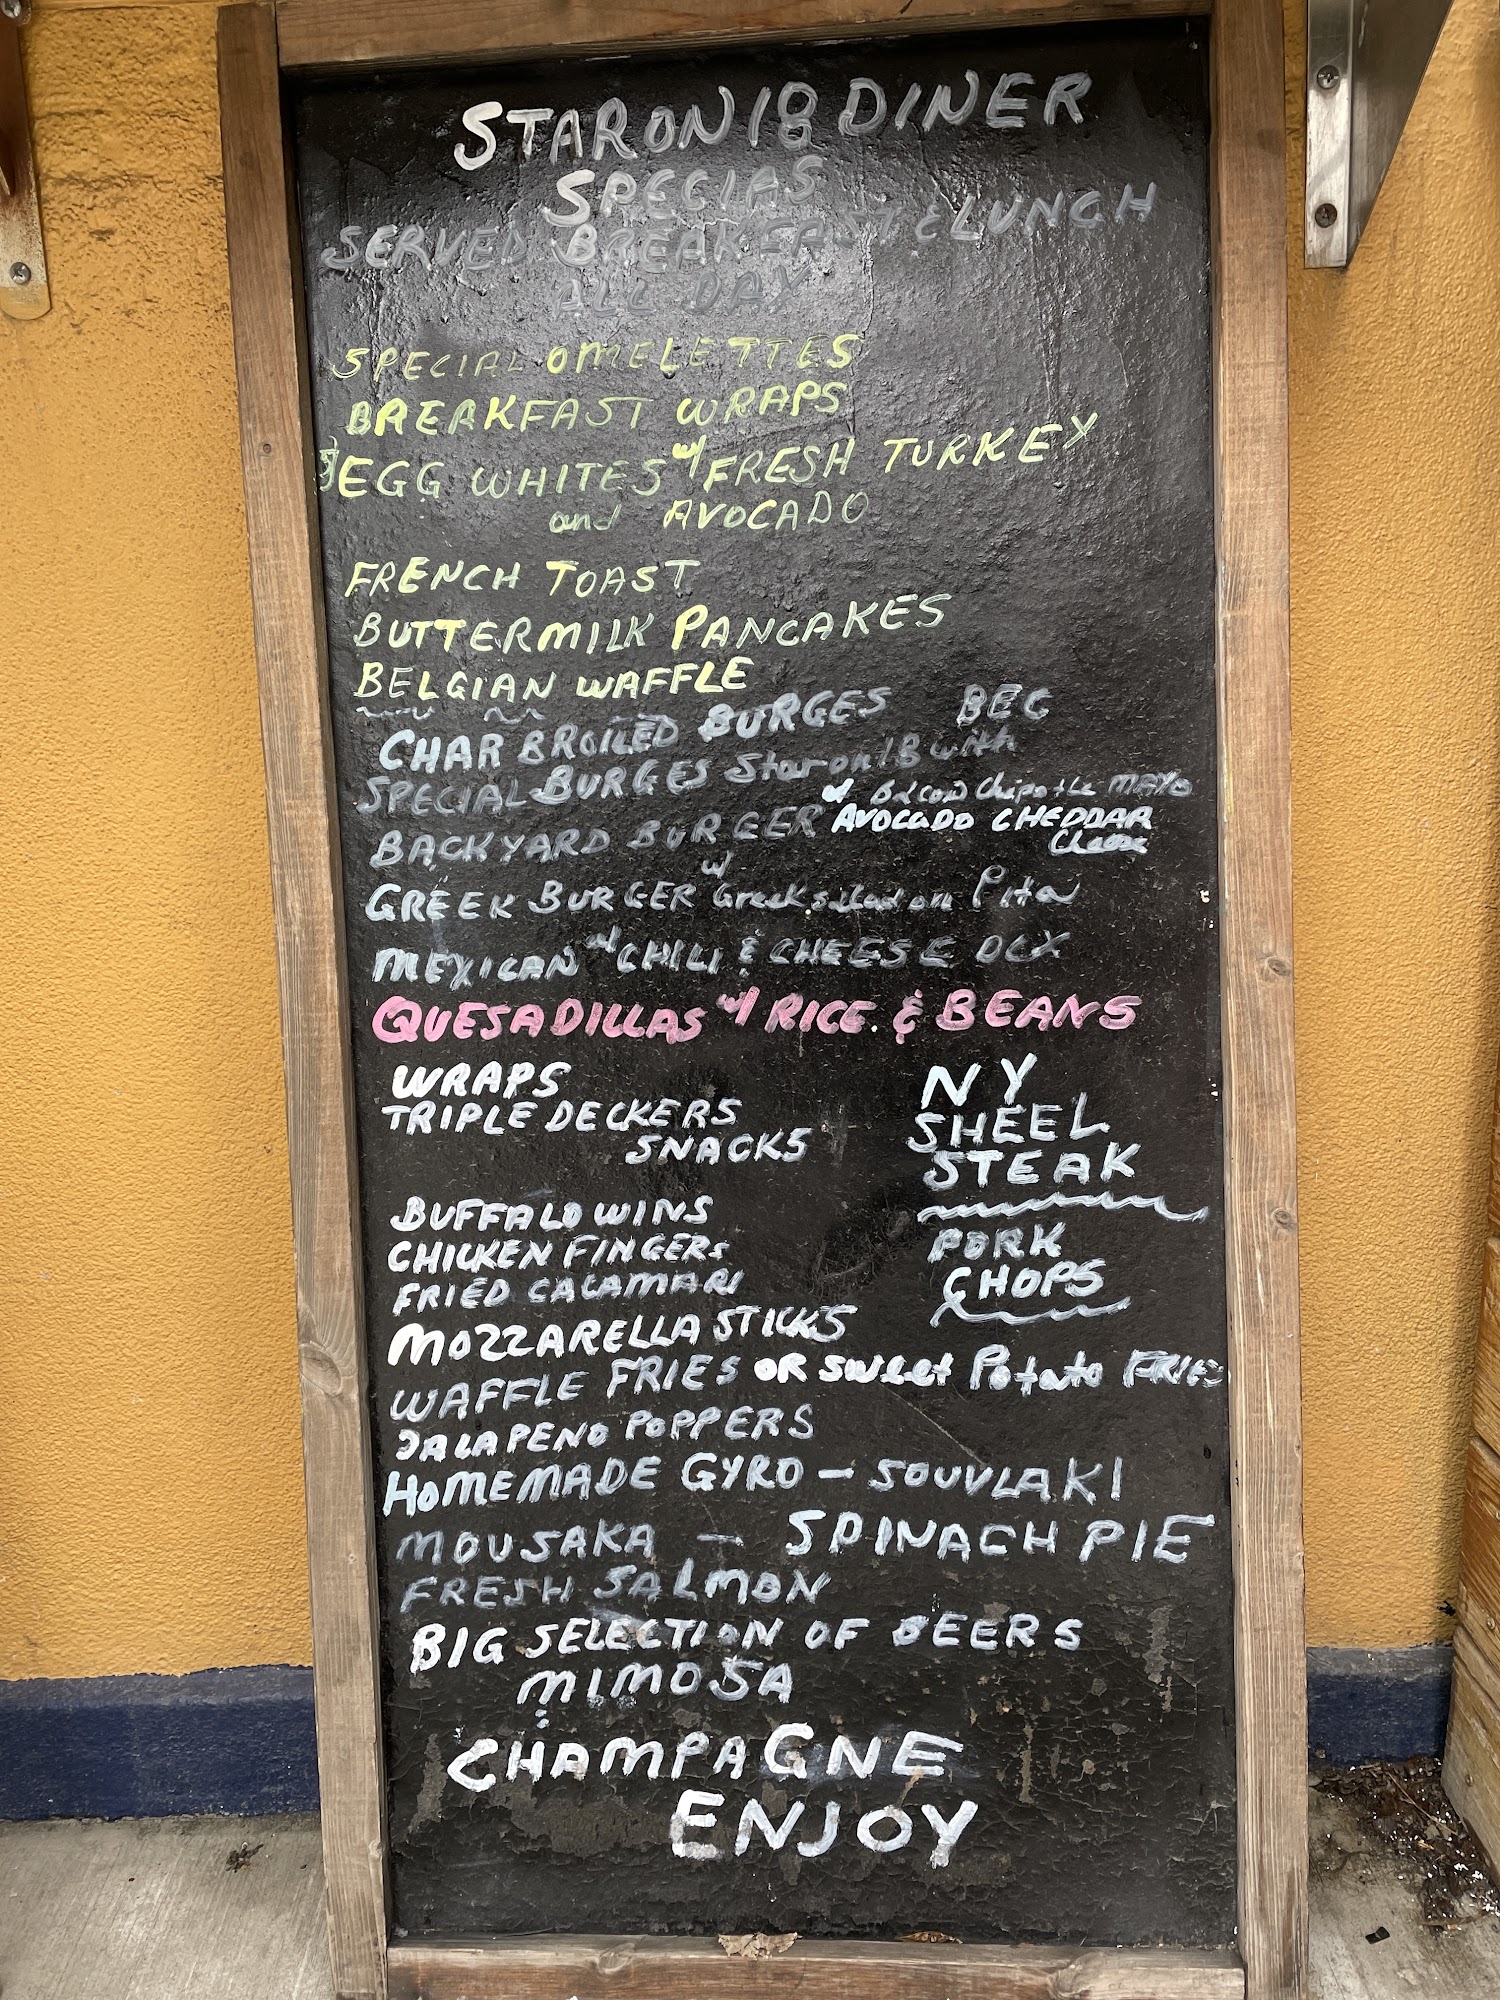 STARON18 DINER
SPECIAS
SERVED BREAKFAST & LUNCH
ALL DAY
SPECIAL OMELETTES
BREAKFAST WRAPS
EGG WHITES w/ FRESH TURKEY
and AVOCADO
FRENCH TOAST
BUTTERMILK PANCAKES
BELGIAN WAFFLE
CHAR BROILED BURGES BEG
SPECIAL BURGES Staron18 with
BACKYARD BURGER w/ Bacon Chipotle MAYO
AVOCADO CHEDDAR
Cheese
GREEK BURGER w/ Greek salad on Pita
MEXICAN w/ CHILI & CHEESE DLX
QUESADILLAS w/ RICE & BEANS
WRAPS
TRIPLE DECKERS
SNACKS
NY
SHEEL
STEAK
PORK
CHOPS
BUFFALO WINS
CHICKEN FINGERS
FRIED CALAMARI
MOZZARELLA STICKS
WAFFLE FRIES OR SWEET Potato FRIES
JALAPENO POPPERS
HOMEMADE GYRO - SOUVLAKI
MOUSAKA - SPINACH PIE
FRESH SALMON
BIG SELECTION OF BEERS
MIMOSA
CHAMPAGNE
ENJOY